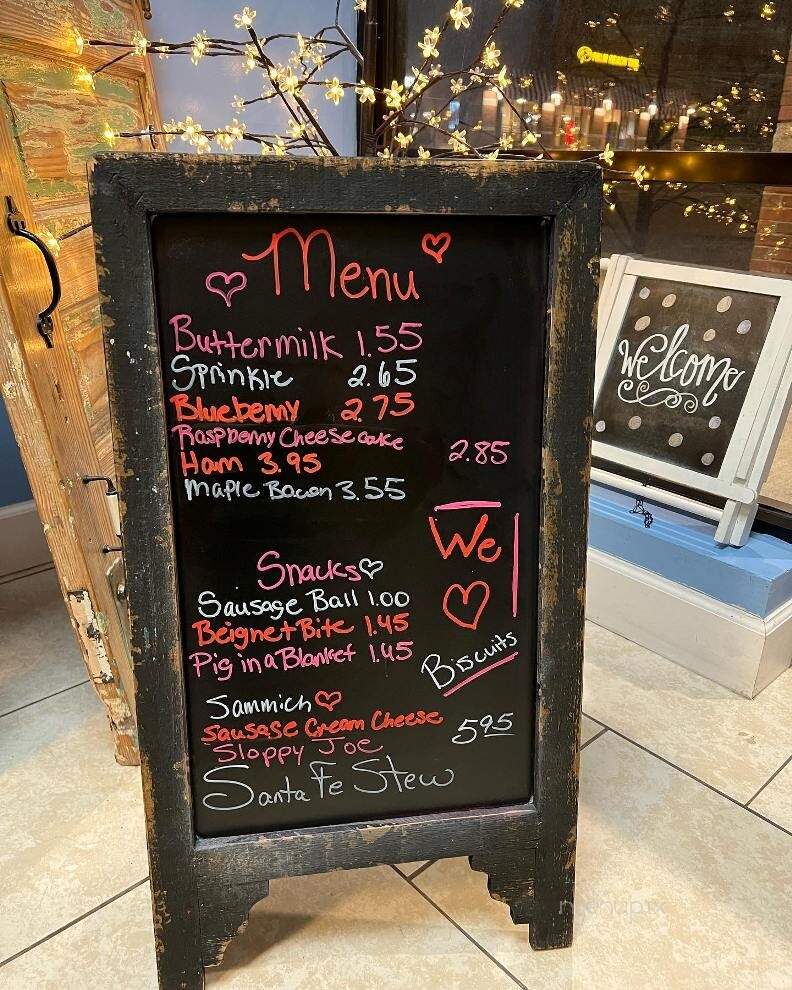 Menu
Buttermilk 1.55
Sprinkle 2.65
Blueberry 2.75
Raspberry Cheesecake 2.85
Ham 3.95
Maple Bacon 3.55
We
Biscuits
Snacks
Sausage Ball 1.00
Beignet Bite 1.45
Pig in a Blanket 1.45
Sammich
Sausage Cream Cheese 5.95
Sloppy Joe
Santa Fe Stew
welcome
menupix